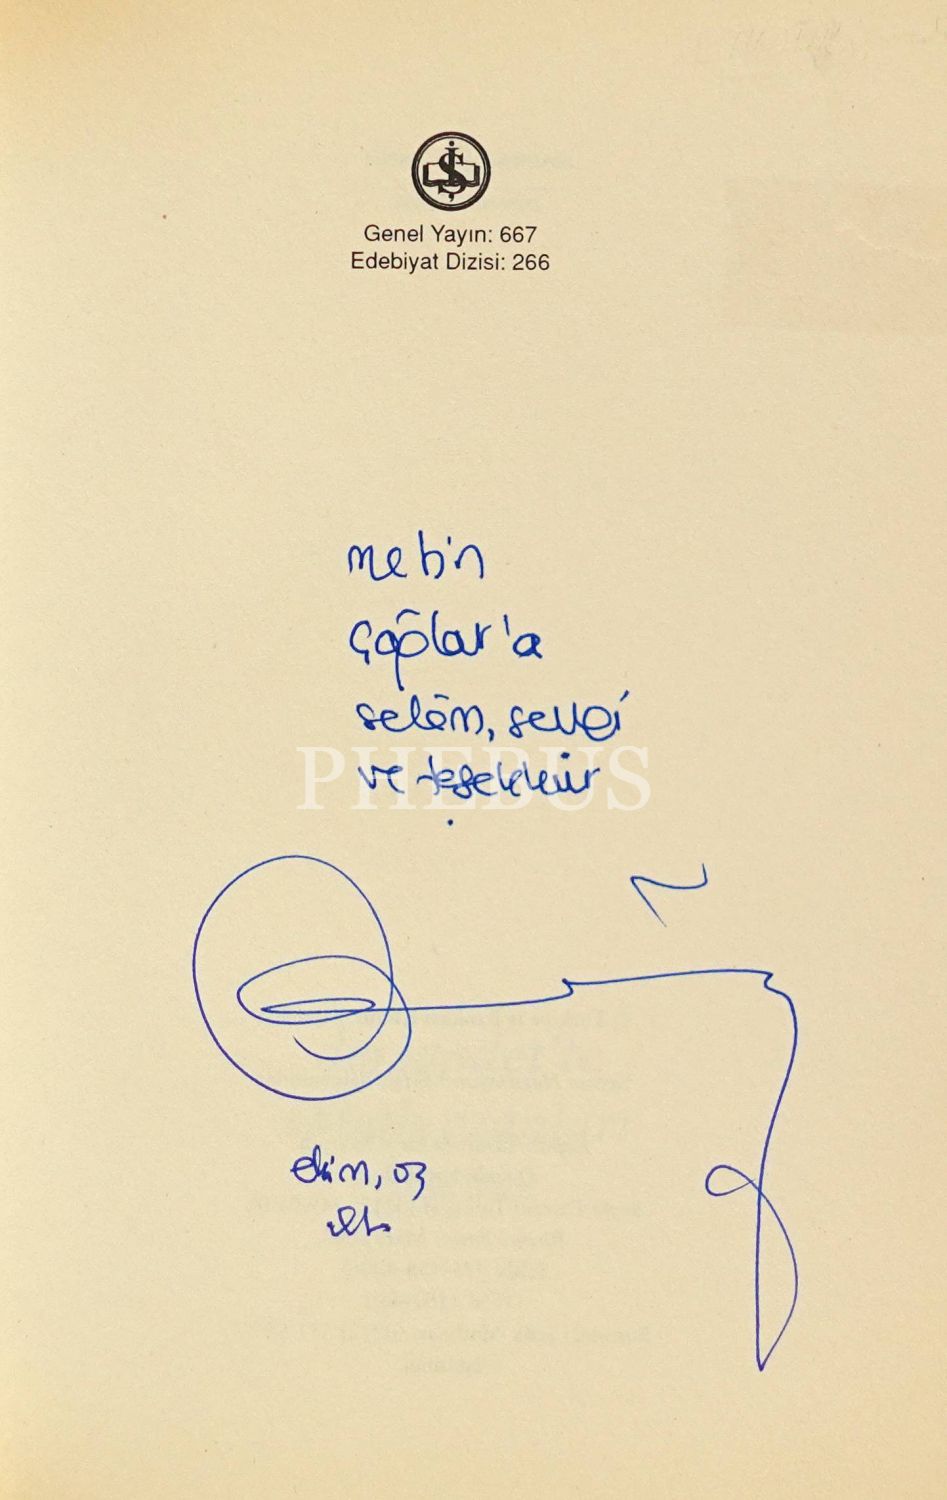 İŞ
Genel Yayın: 667
Edebiyat Dizisi: 266
Metin
Çağlar'a
selâm, sevgi
ve teşekkür
PHEBUS
ekim, 03
ist.